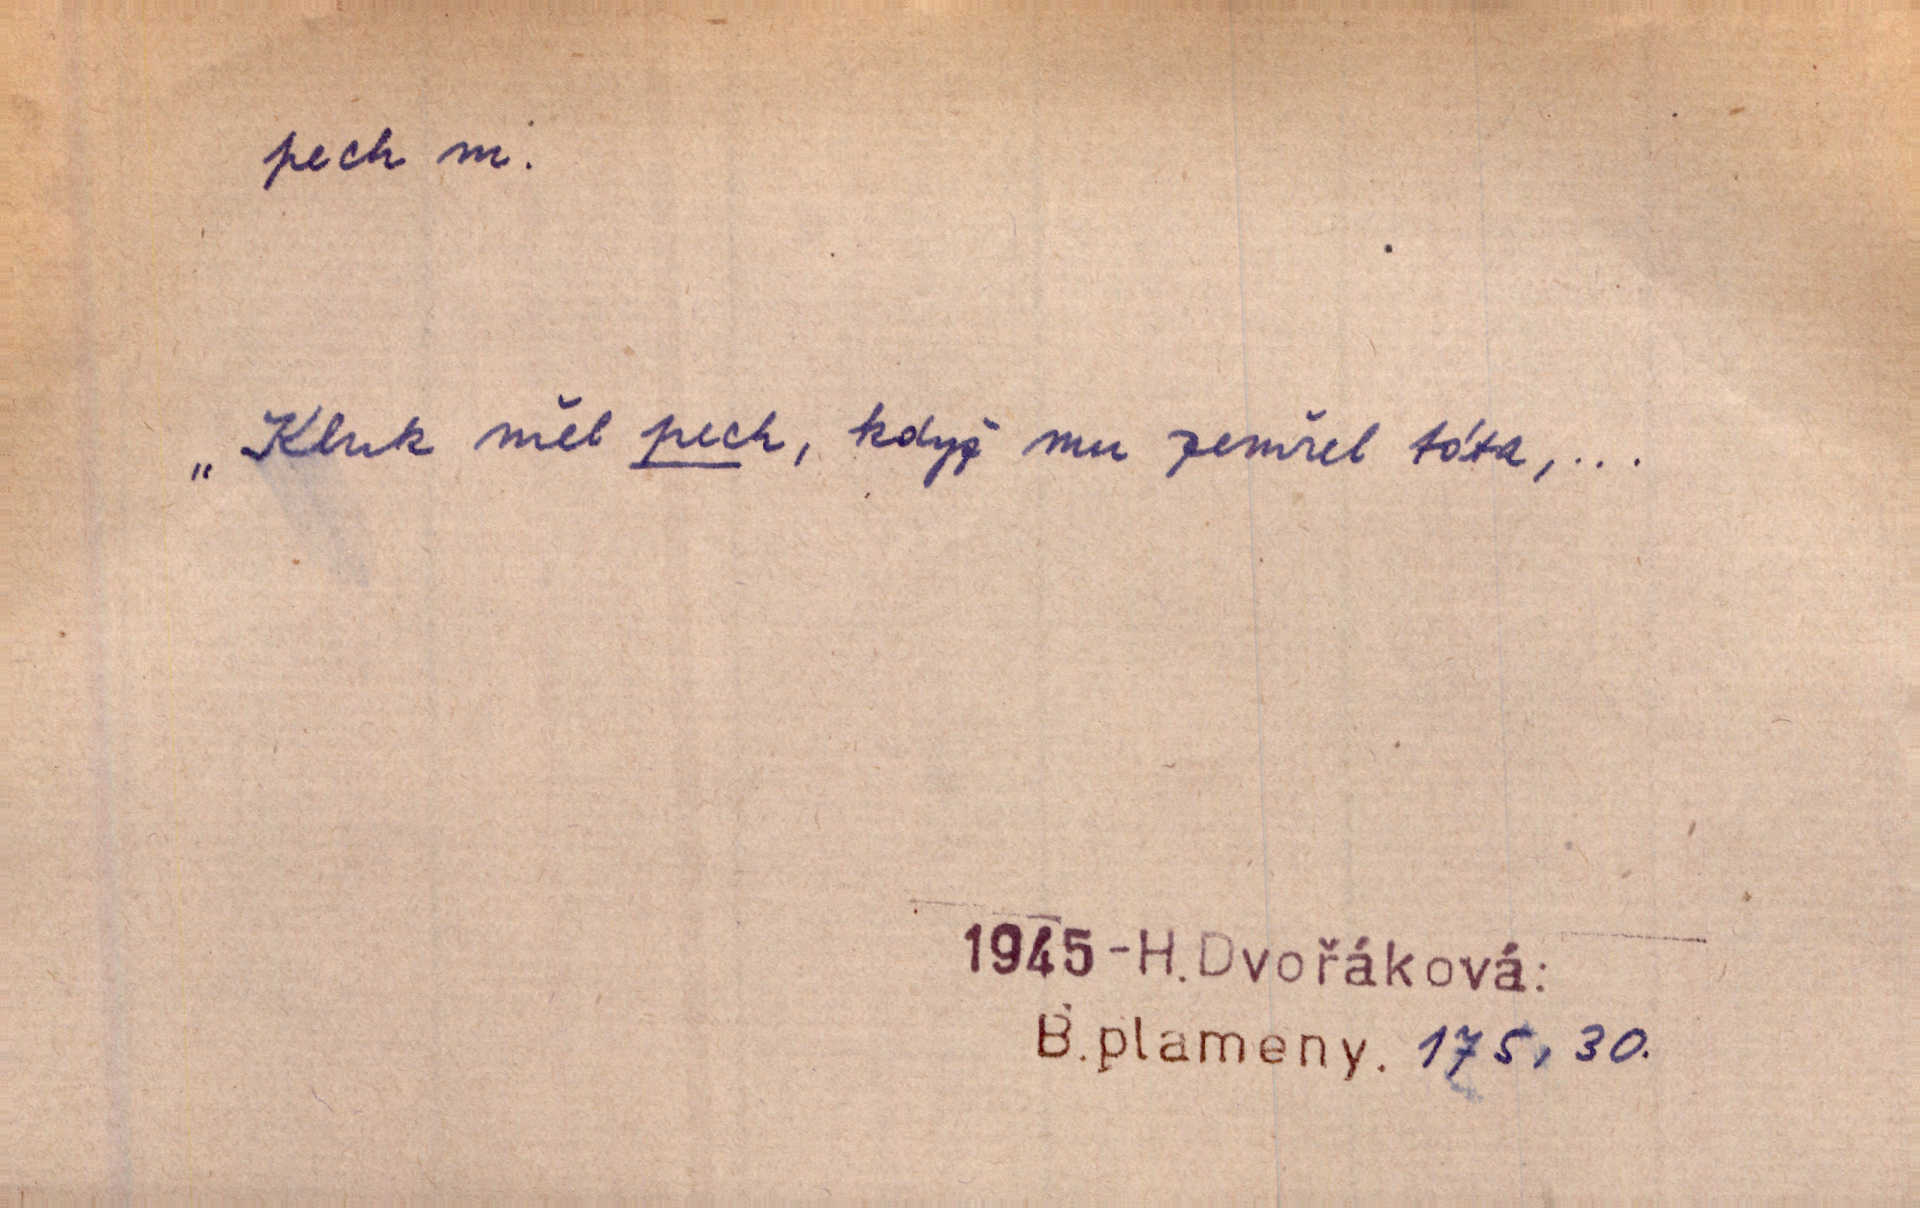 pech m.
„Kluk měl pech, když mu zemřel tóta, ...
1945-H.Dvořáková:
B.plameny. 175, 30.